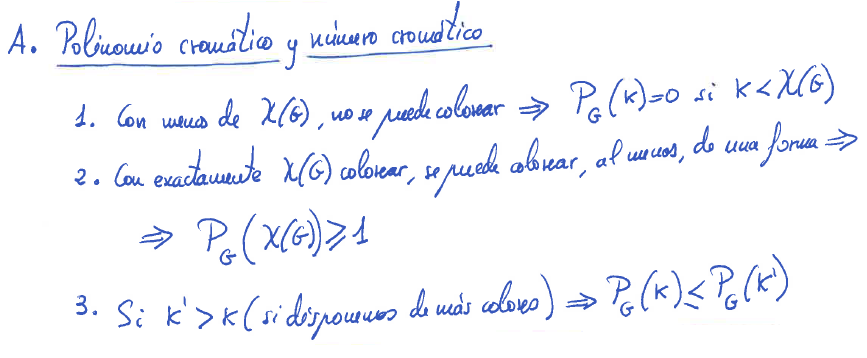 A. Polinomio cromático y número cromático
1. Con menos de χ(G), no se puede colorear ⇒ P_G(K)=0 si K<χ(G)
2. Con exactamente χ(G) colorear, se puede colorear, al menos, de una forma ⇒
⇒ P_G(χ(G))⩾1
3. Si K'>K (si disponemos de más colores) ⇒ P_G(K)≤P_G(K')